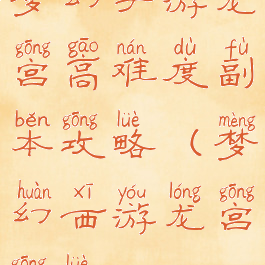 梦幻西游龙
gōng gāo nán dù fù
宫高难度副
běn gōng lüè mèng
本攻略（梦
huàn xī yóu lóng gōng
幻西游龙宫
gōng lüè